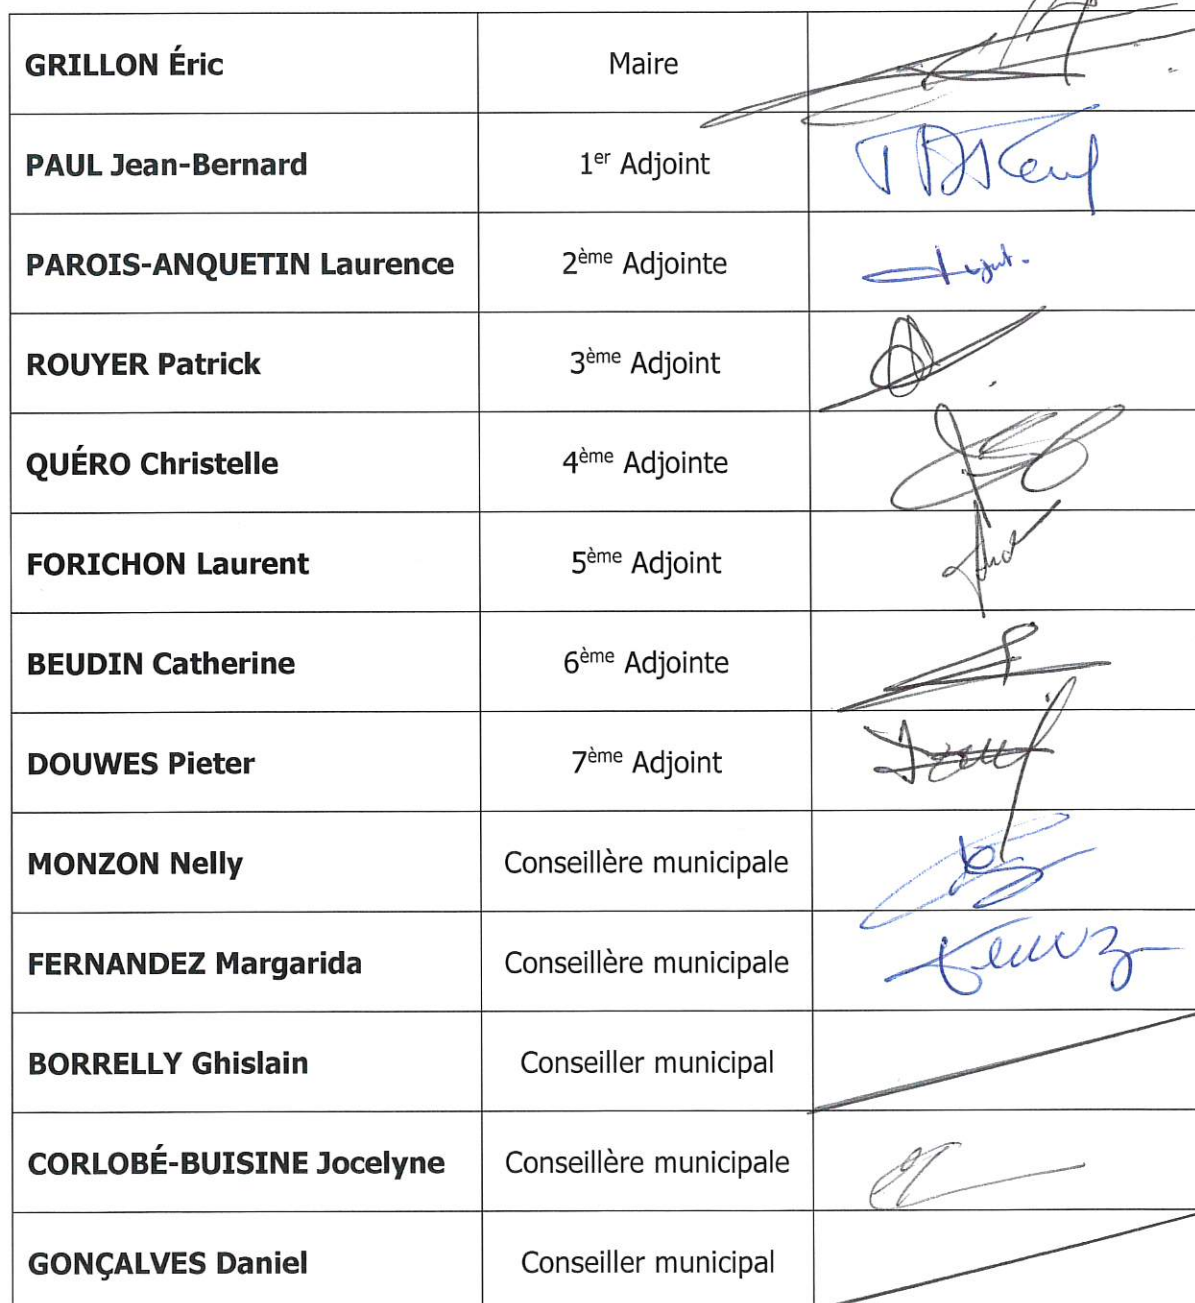 GRILLON Éric Maire
PAUL Jean-Bernard 1er Adjoint
PAROIS-ANQUETIN Laurence 2ème Adjointe
ROUYER Patrick 3ème Adjoint
QUÉRO Christelle 4ème Adjointe
FORICHON Laurent 5ème Adjoint
BEUDIN Catherine 6ème Adjointe
DOUWES Pieter 7ème Adjoint
MONZON Nelly Conseillère municipale
FERNANDEZ Margarida Conseillère municipale
BORRELLY Ghislain Conseiller municipal
CORLOBÉ-BUISINE Jocelyne Conseillère municipale
GONÇALVES Daniel Conseiller municipal